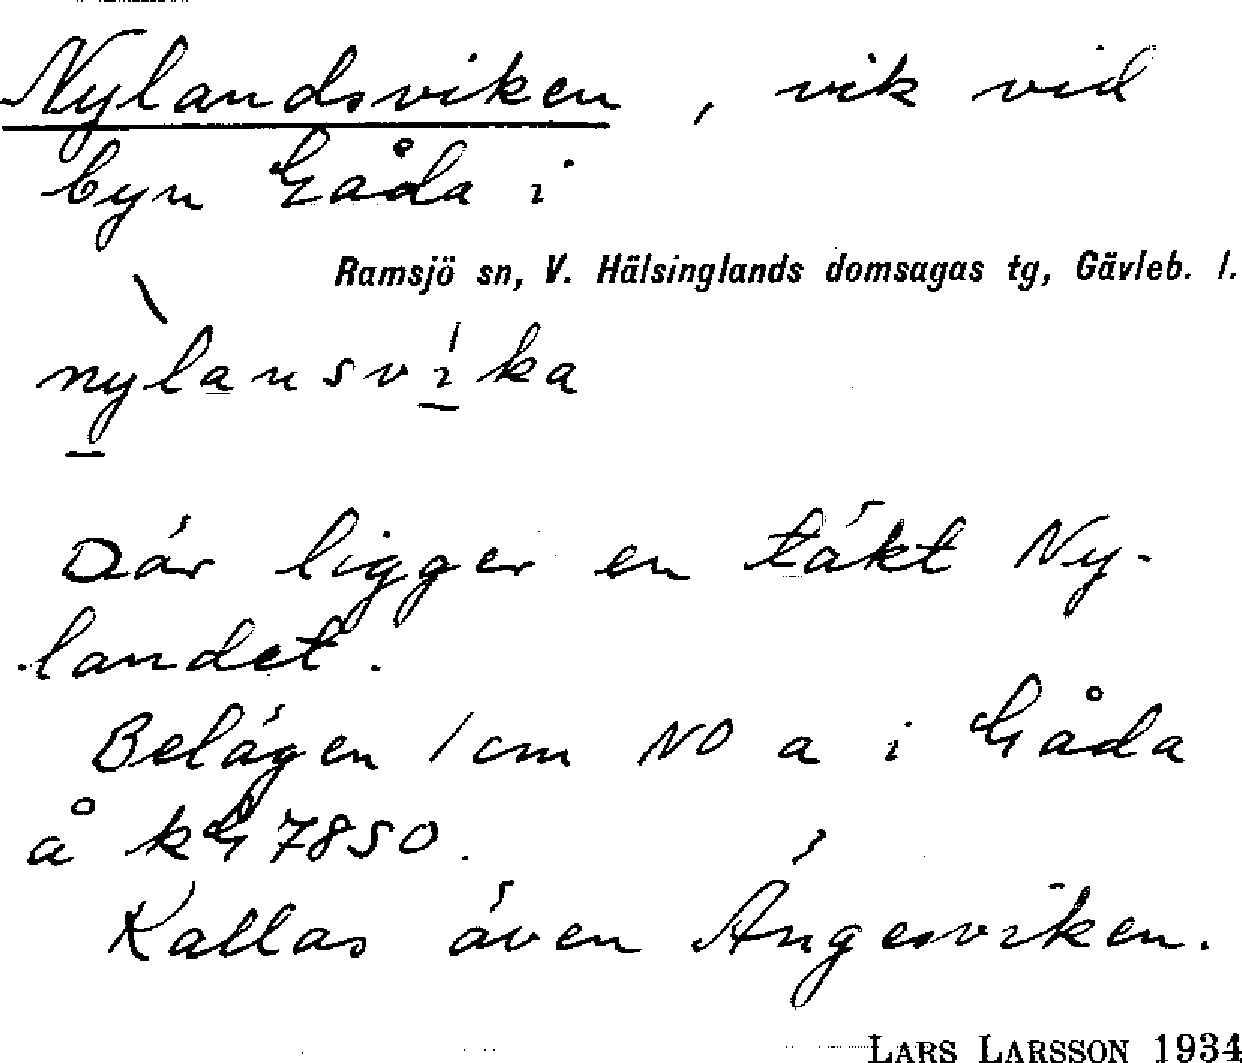 Nylandsviken, vik vid
byn Gåda i
Ramsjö sn, V. Hälsinglands domsagas tg, Gävleb. l.
nỳlansvíka
Där ligger en täkt Ny-
landet.
Belägen 1 cm NO a i Gåda
å kG 7850.
Kallas även Ängesviken.
LARS LARSSON 1934